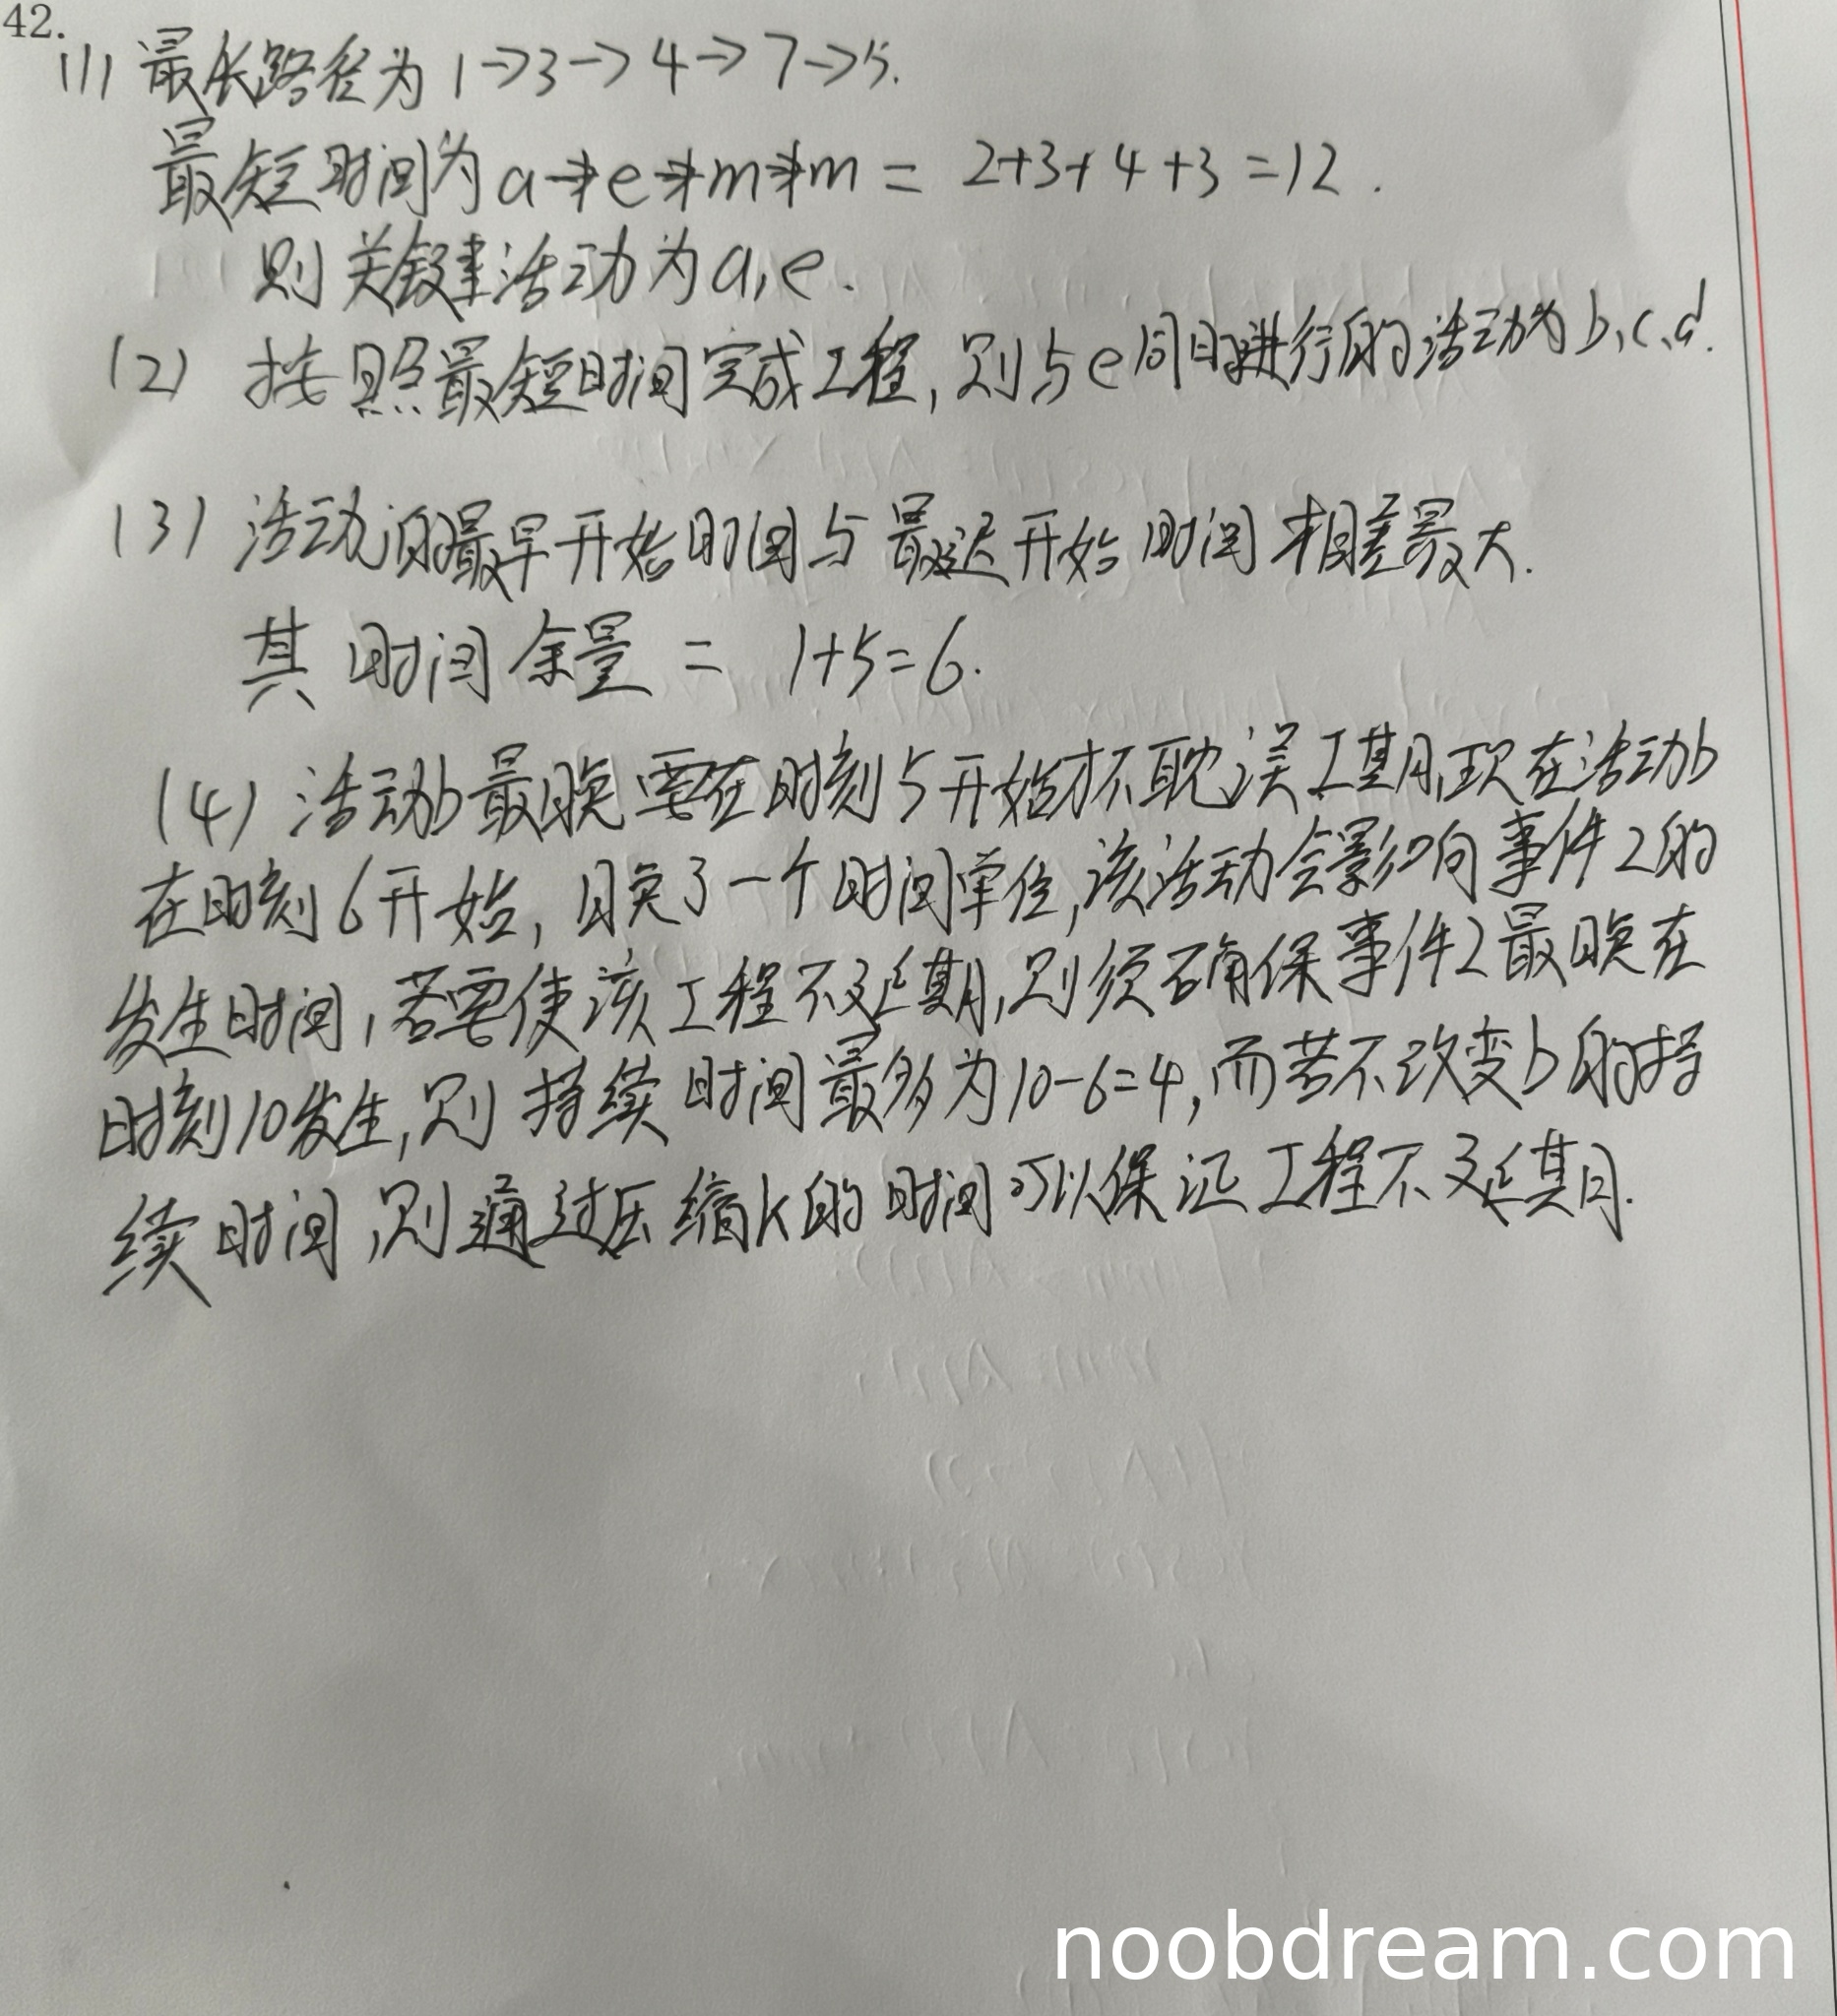 42.
(1) 最长路径为 1→3→4→7→5.
最短时间为 a+e+m+m = 2+3+4+3=12.
则关键活动为a,e.
(2) 按照最短时间完成工程,则与e同时进行的活动为b、c、d.
(3) 活动 的最早开始时间与最迟开始时间相差最大.
其时间余量 = 1+5=6.
(4) 活动b最晚要在时刻5开始才不耽误工期,现在活动b
在时刻6开始,晚了一个时间单位,该活动会影响事件2的
发生时间,若要使该工程不延期,则须确保事件2最晚在
时刻10发生,则持续时间最多为10-6=4,而若不改变b的持
续时间,则通过压缩k的时间可以保证工程不延期.
noobdream.com